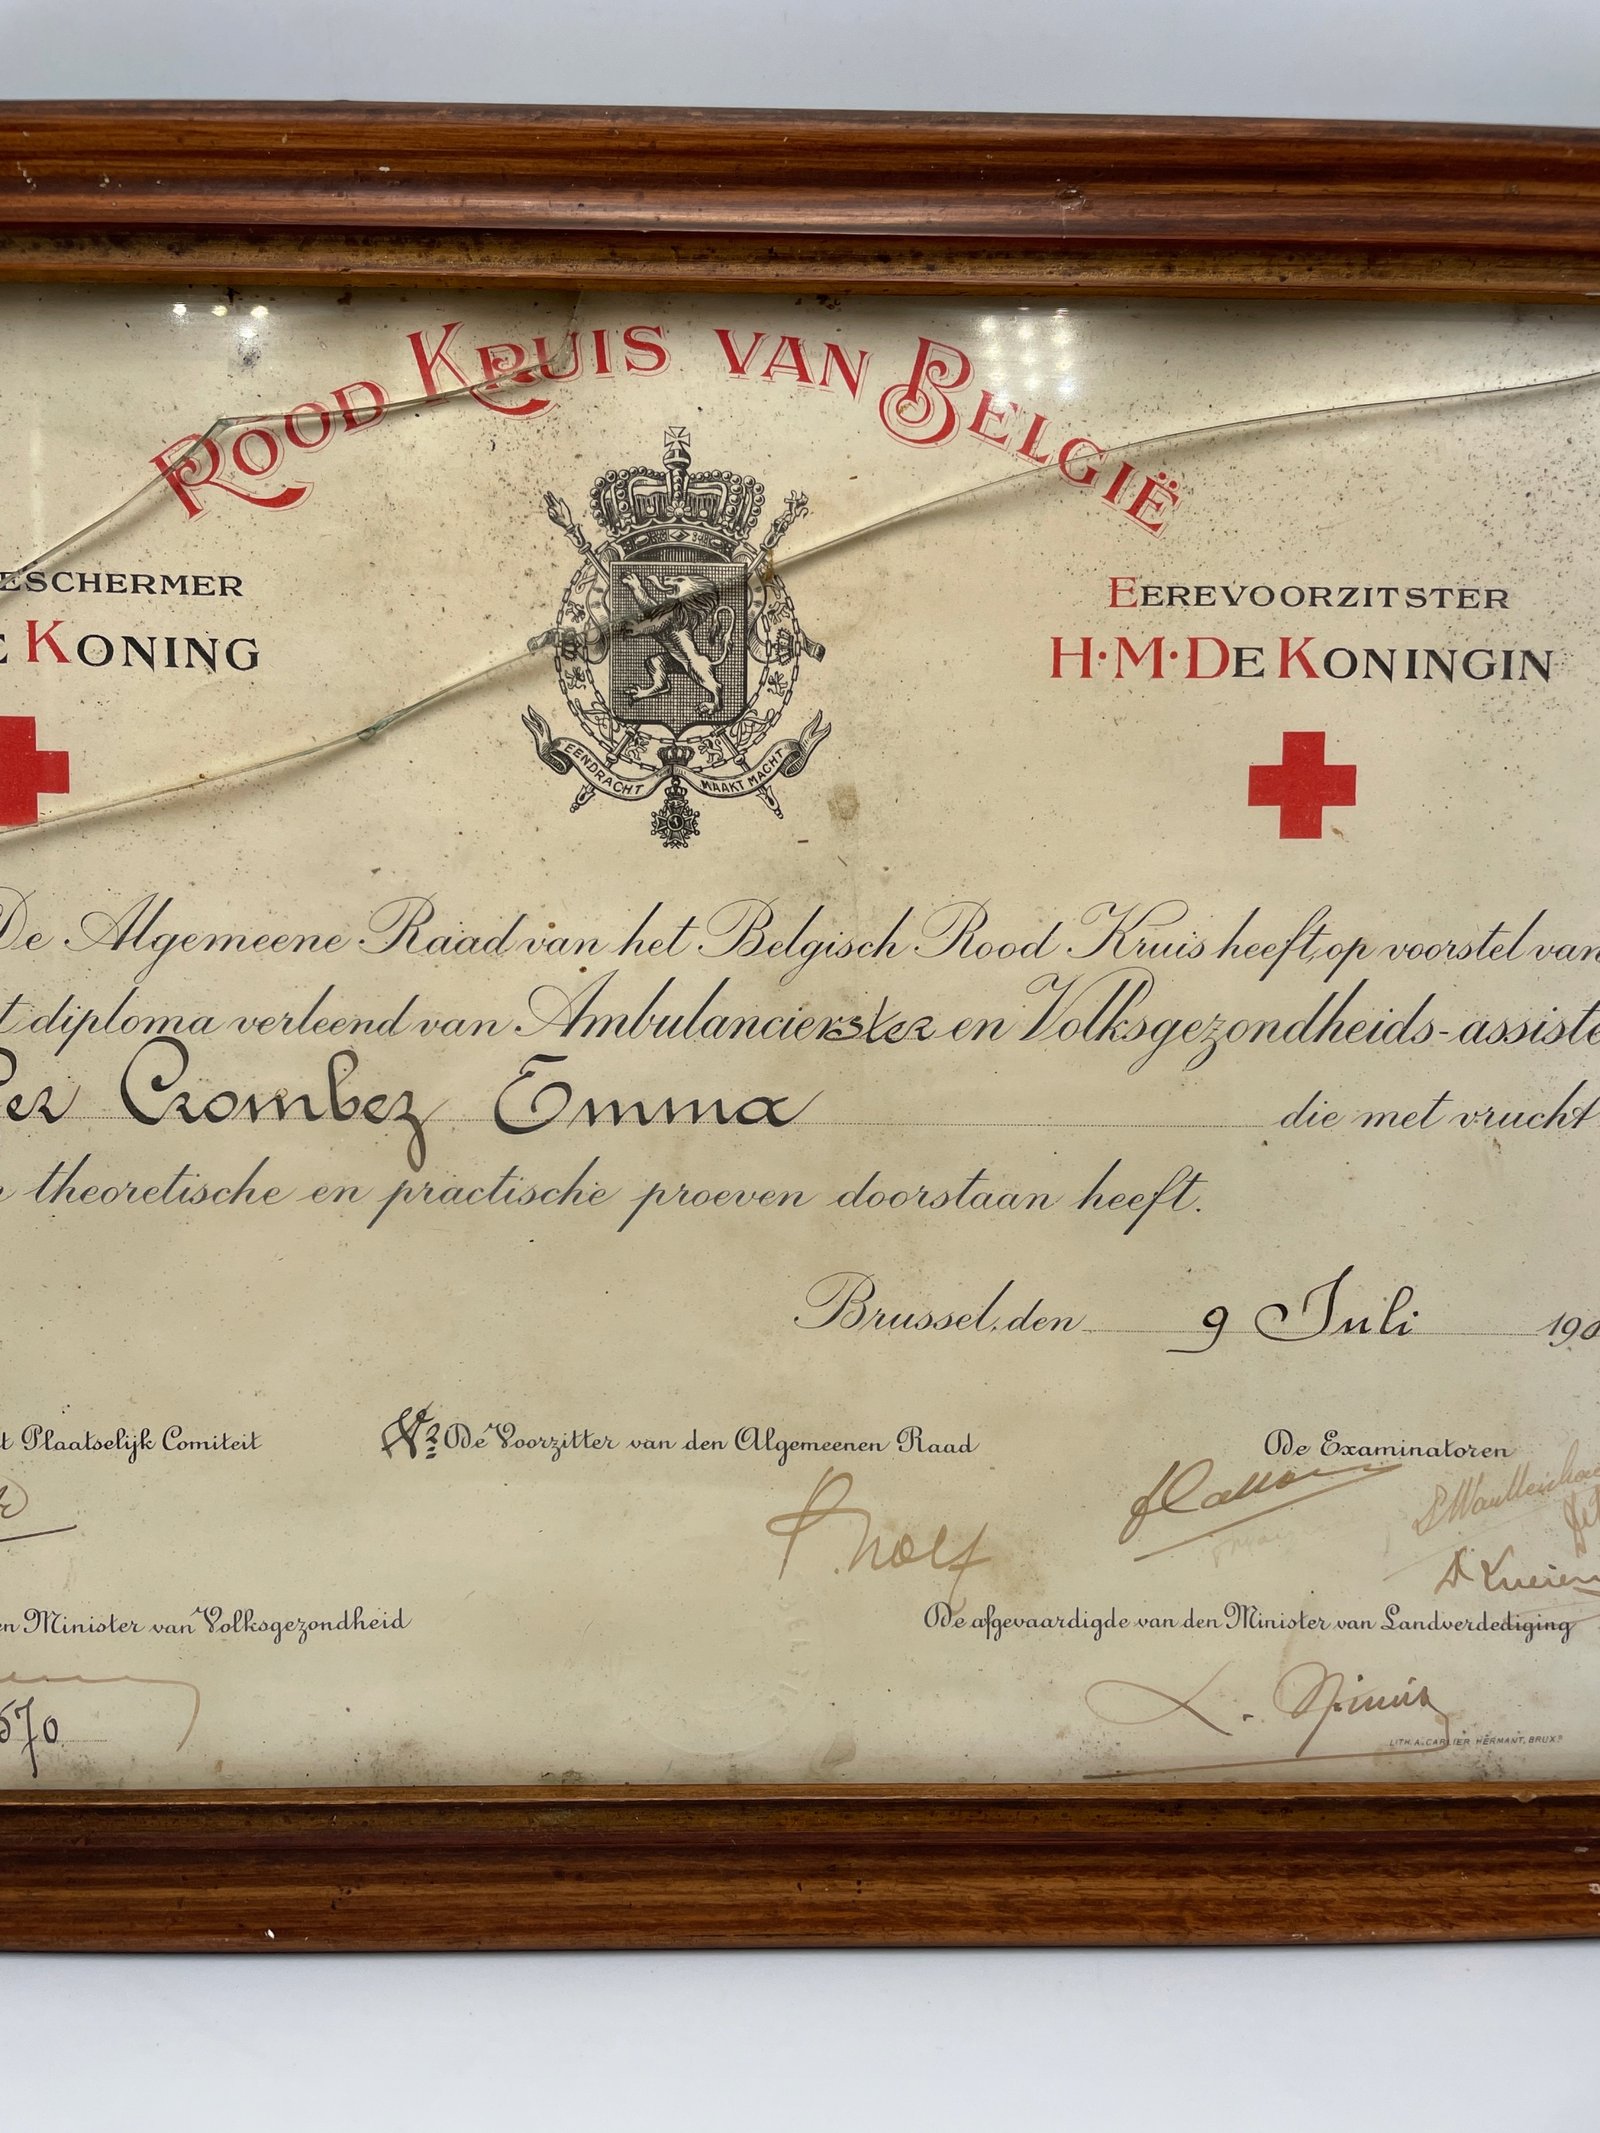 ROOD KRUIS VAN BELGIË
ESCHERMER
KONING
EEREVOORZITSTER
H·M·DE KONINGIN
EENDRACHT MAAKT MACHT
De Algemeene Raad van het Belgisch Rood Kruis heeft, op voorstel van
t diploma verleend van Ambulancierster en Volksgezondheids-assiste
Crombez Emma die met vrucht
theoretische en practische proeven doorstaan heeft.
Brussel, den 9 Juli 190
t Plaatselijk Comiteit
De Voorzitter van den Algemeenen Raad
De Examinatoren
P. Nolf
en Minister van Volksgezondheid
De afgevaardigde van den Minister van Landverdediging
570
LITH. A. CARLIER HERMANT, BRUXS